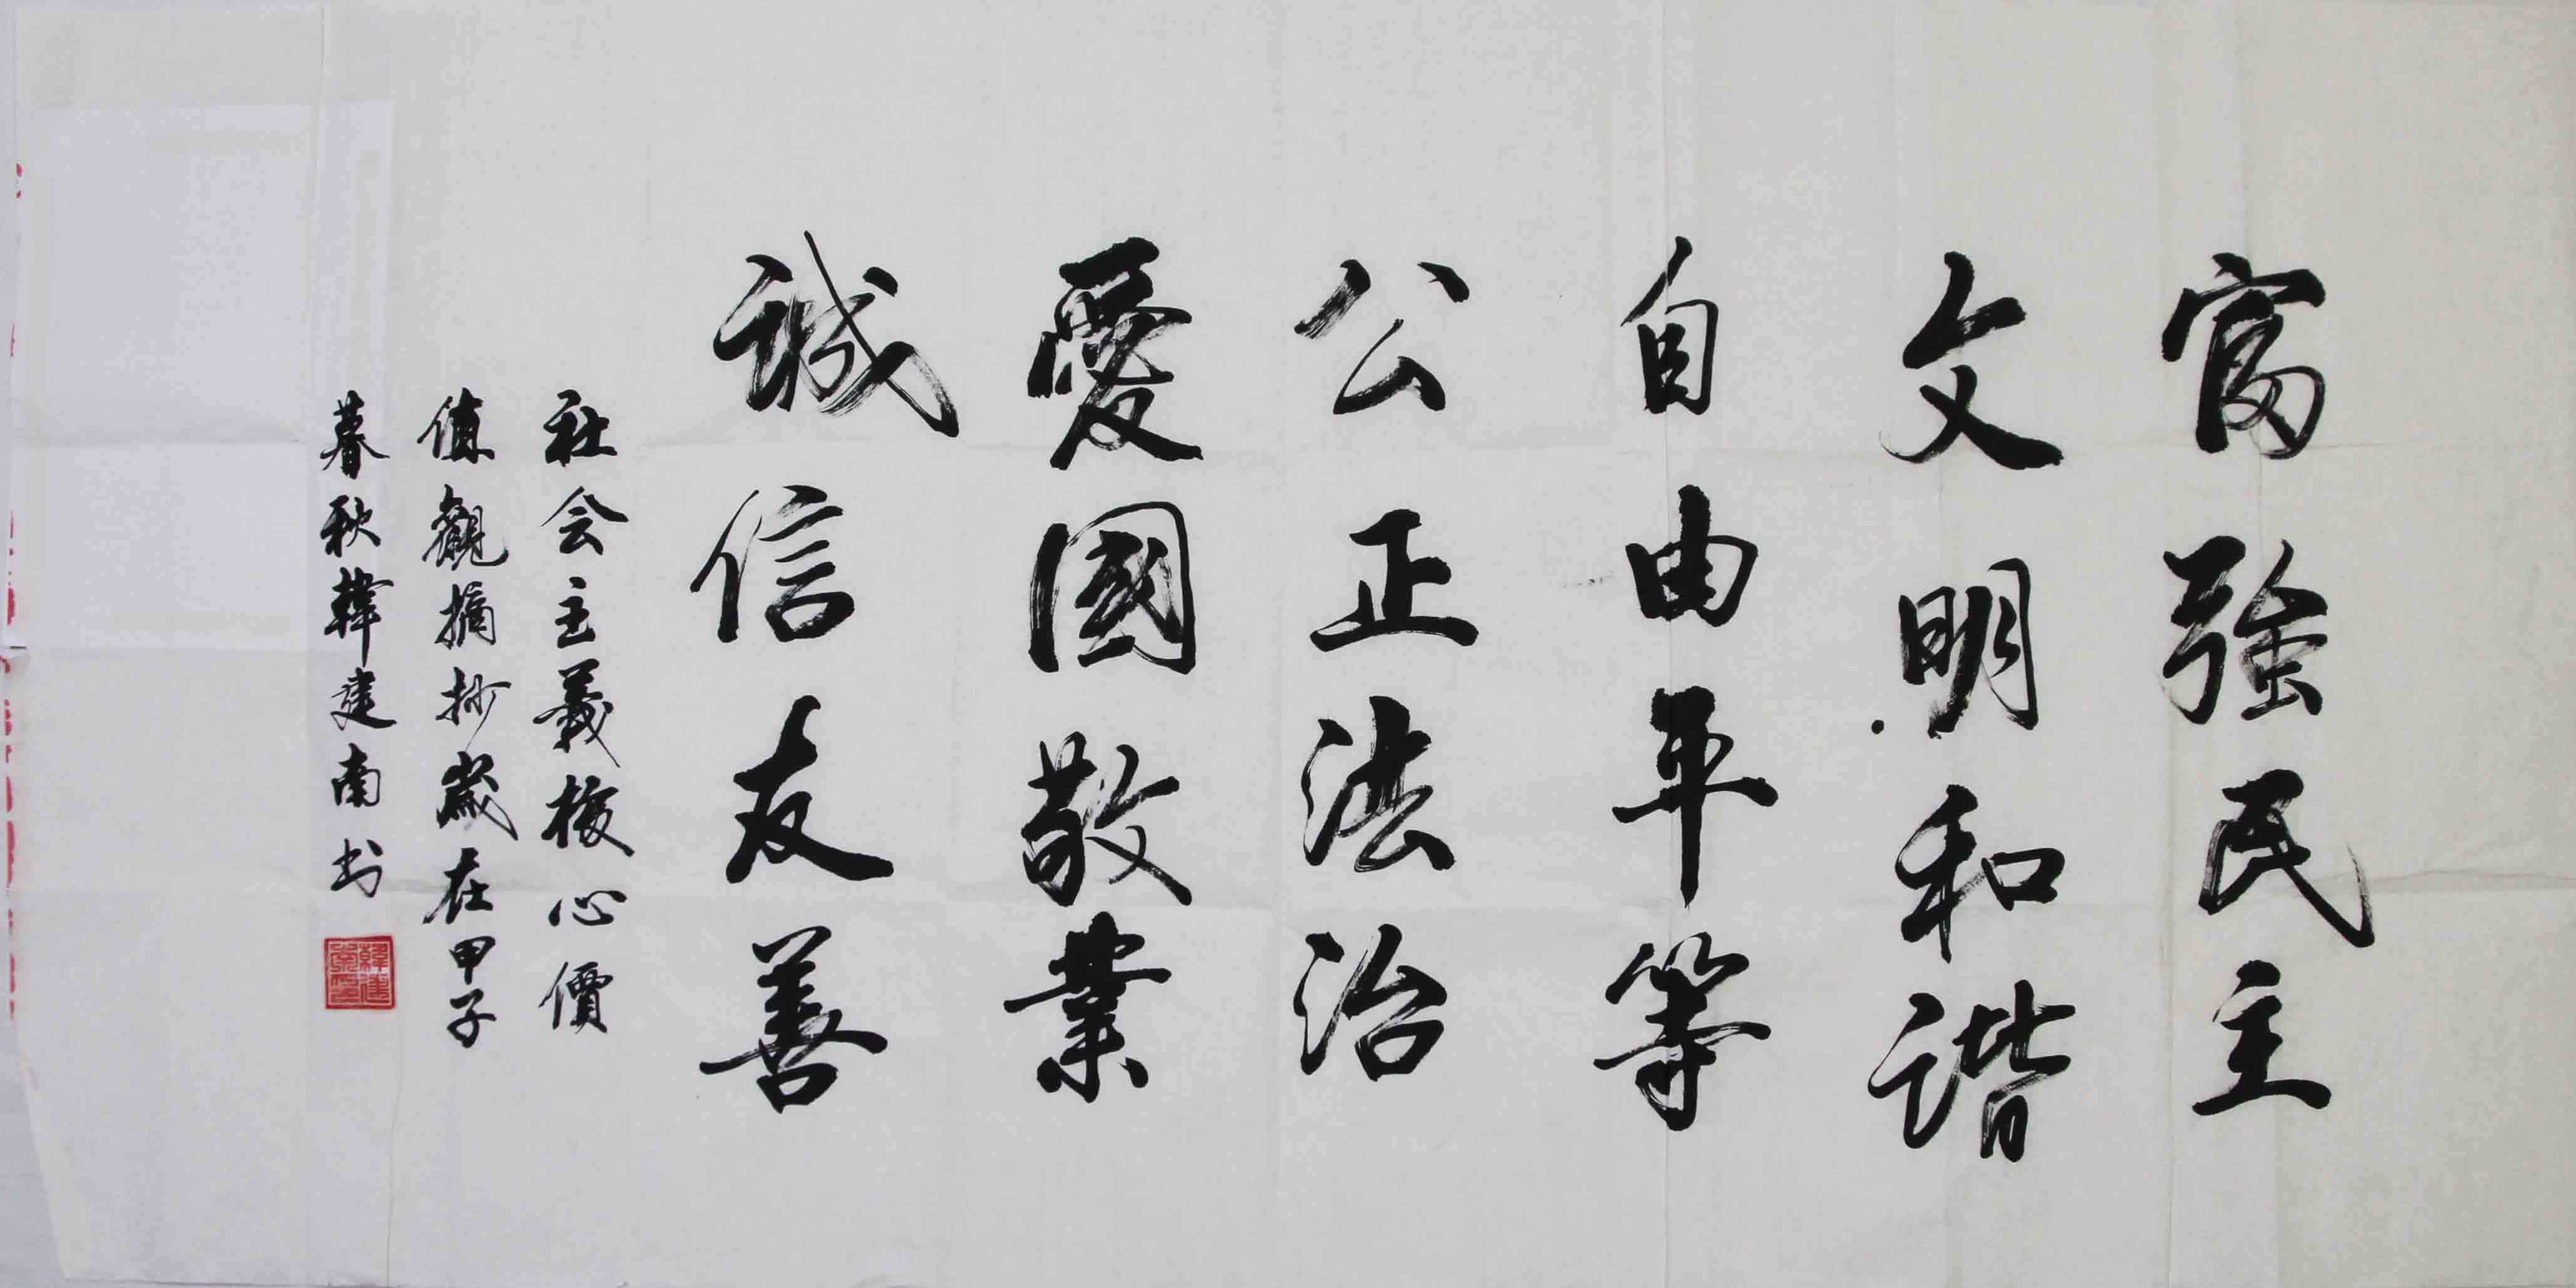 富強民主
文明和谐
自由平等
公正法治
愛國敬業
誠信友善
社会主義核心價
值觀摘抄歲在甲子
暮秋韓建南书